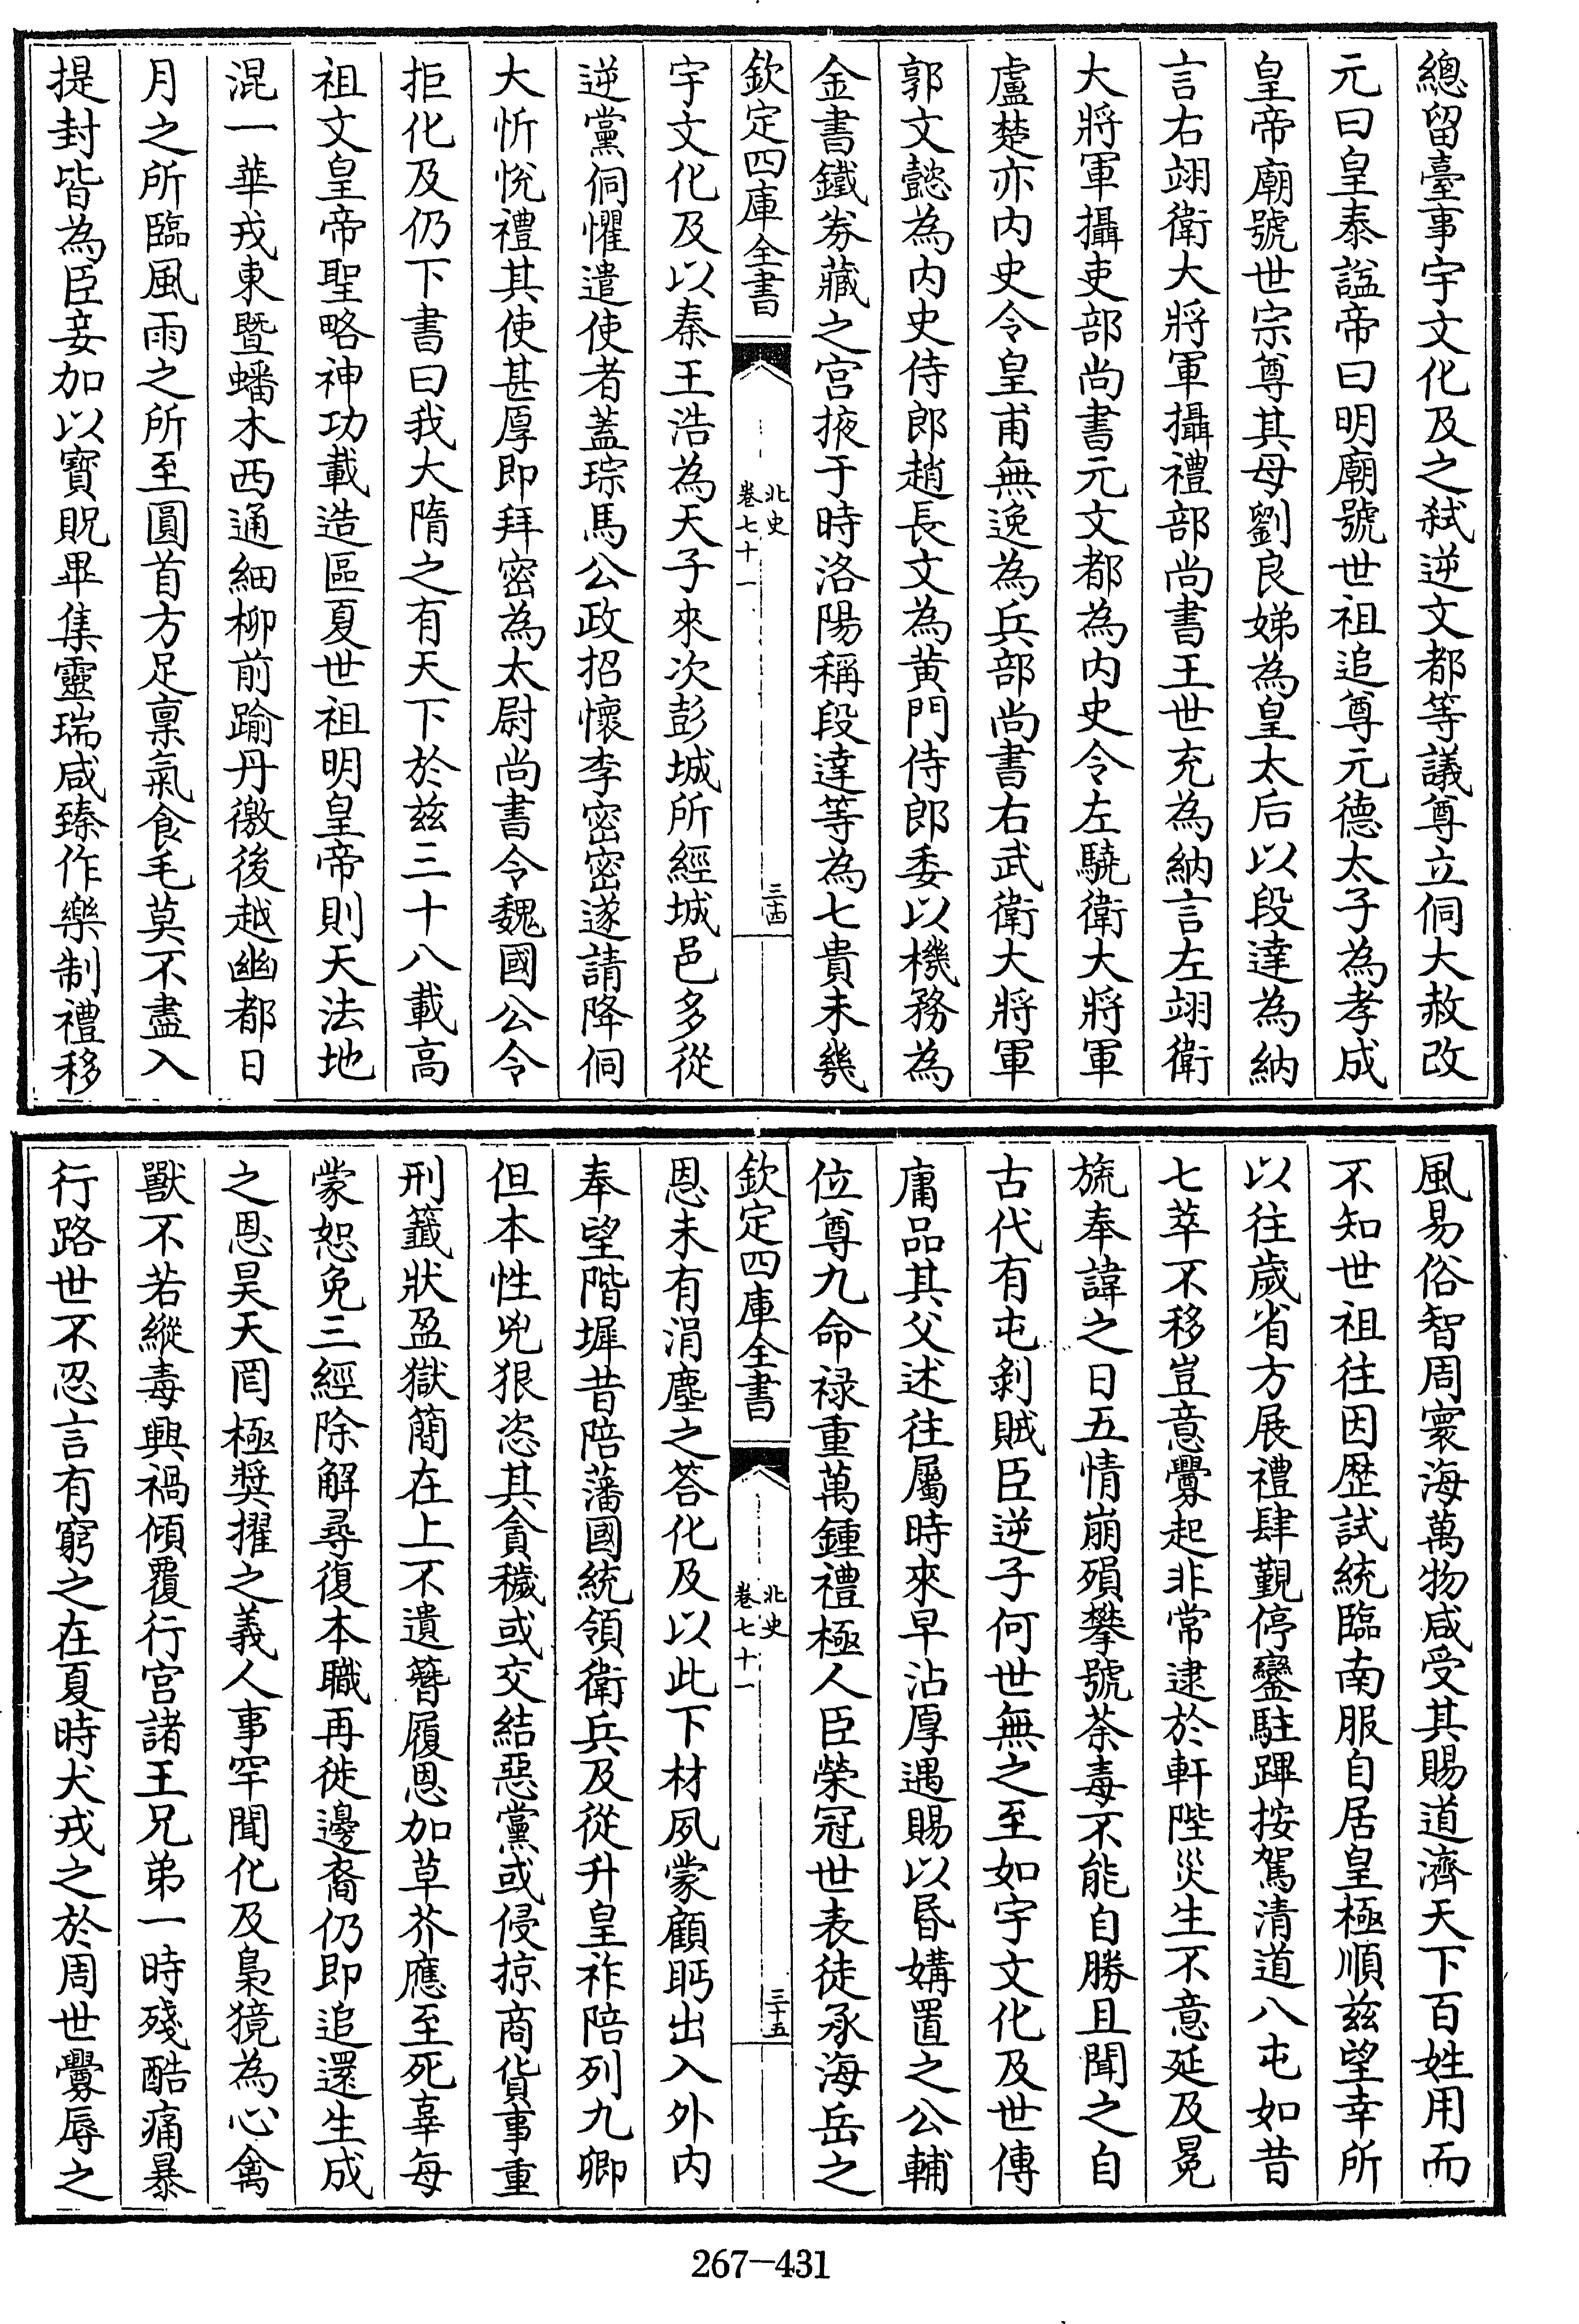 總留臺事宇文化及之弑逆文都等議尊立侗大赦改
元曰皇泰諡帝曰明廟號世祖追尊元德太子為孝成
皇帝廟號世宗尊其母劉良娣為皇太后以段達為納
言右翊衛大將軍攝禮部尚書王世充為納言左翊衛
大將軍攝吏部尚書元文都為内史令左驍衛大將軍
盧楚亦内史令皇甫無逸為兵部尚書右武衛大將軍
郭文懿為内史侍郎趙長文為黄門侍郎委以機務為
金書鐵券藏之宫掖于時洛陽稱段達等為七貴未幾
欽定四庫全書
北史
卷七十一
三十四
宇文化及以秦王浩為天子來次彭城所經城邑多從
逆黨侗懼遣使者蓋琮馬公政招懷李密密遂請降侗
大忻悅禮其使甚厚即拜密為太尉尚書令魏國公令
拒化及仍下書曰我大隋之有天下於兹三十八載高
祖文皇帝聖略神功載造區夏世祖明皇帝則天法地
混一華戎東暨蟠木西通細柳前踰丹徼後越幽都日
月之所臨風雨之所至圓首方足稟氣食毛莫不盡入
提封皆為臣妾加以寳貺畢集靈瑞咸臻作樂制禮移
風易俗智周寰海萬物咸受其賜道濟天下百姓用而
不知世祖往因歷試統臨南服自居皇極順兹望幸所
以往歲省方展禮肆覲停鑾駐蹕按駕清道八屯如昔
七萃不移豈意釁起非常逮於軒陛災生不意延及冕
旒奉諱之日五情崩殞攀號荼毒不能自勝且聞之自
古代有屯剝賊臣逆子何世無之至如宇文化及世傳
庸品其父述往屬時來早沾厚遇賜以昏媾置之公輔
位尊九命禄重萬鍾禮極人臣榮冠世表徒承海岳之
欽定四庫全書
北史
卷七十一
三十五
恩未有涓塵之答化及以此下材夙蒙顧眄出入外内
奉望階墀昔陪藩國統領衛兵及從升皇祚陪列九卿
但本性兇狠恣其貪穢或交結惡黨或侵掠商貨事重
刑籤狀盈獄簡在上不遺簪履恩加草芥應至死辜每
蒙恕免三經除解尋復本職再徙邊裔仍即追還生成
之恩昊天罔極奬擢之義人事罕聞化及梟獍為心禽
獸不若縱毒興禍傾覆行宫諸王兄弟一時殘酷痛暴
行路世不忍言有窮之在夏時犬戎之於周世釁辱之
267—431